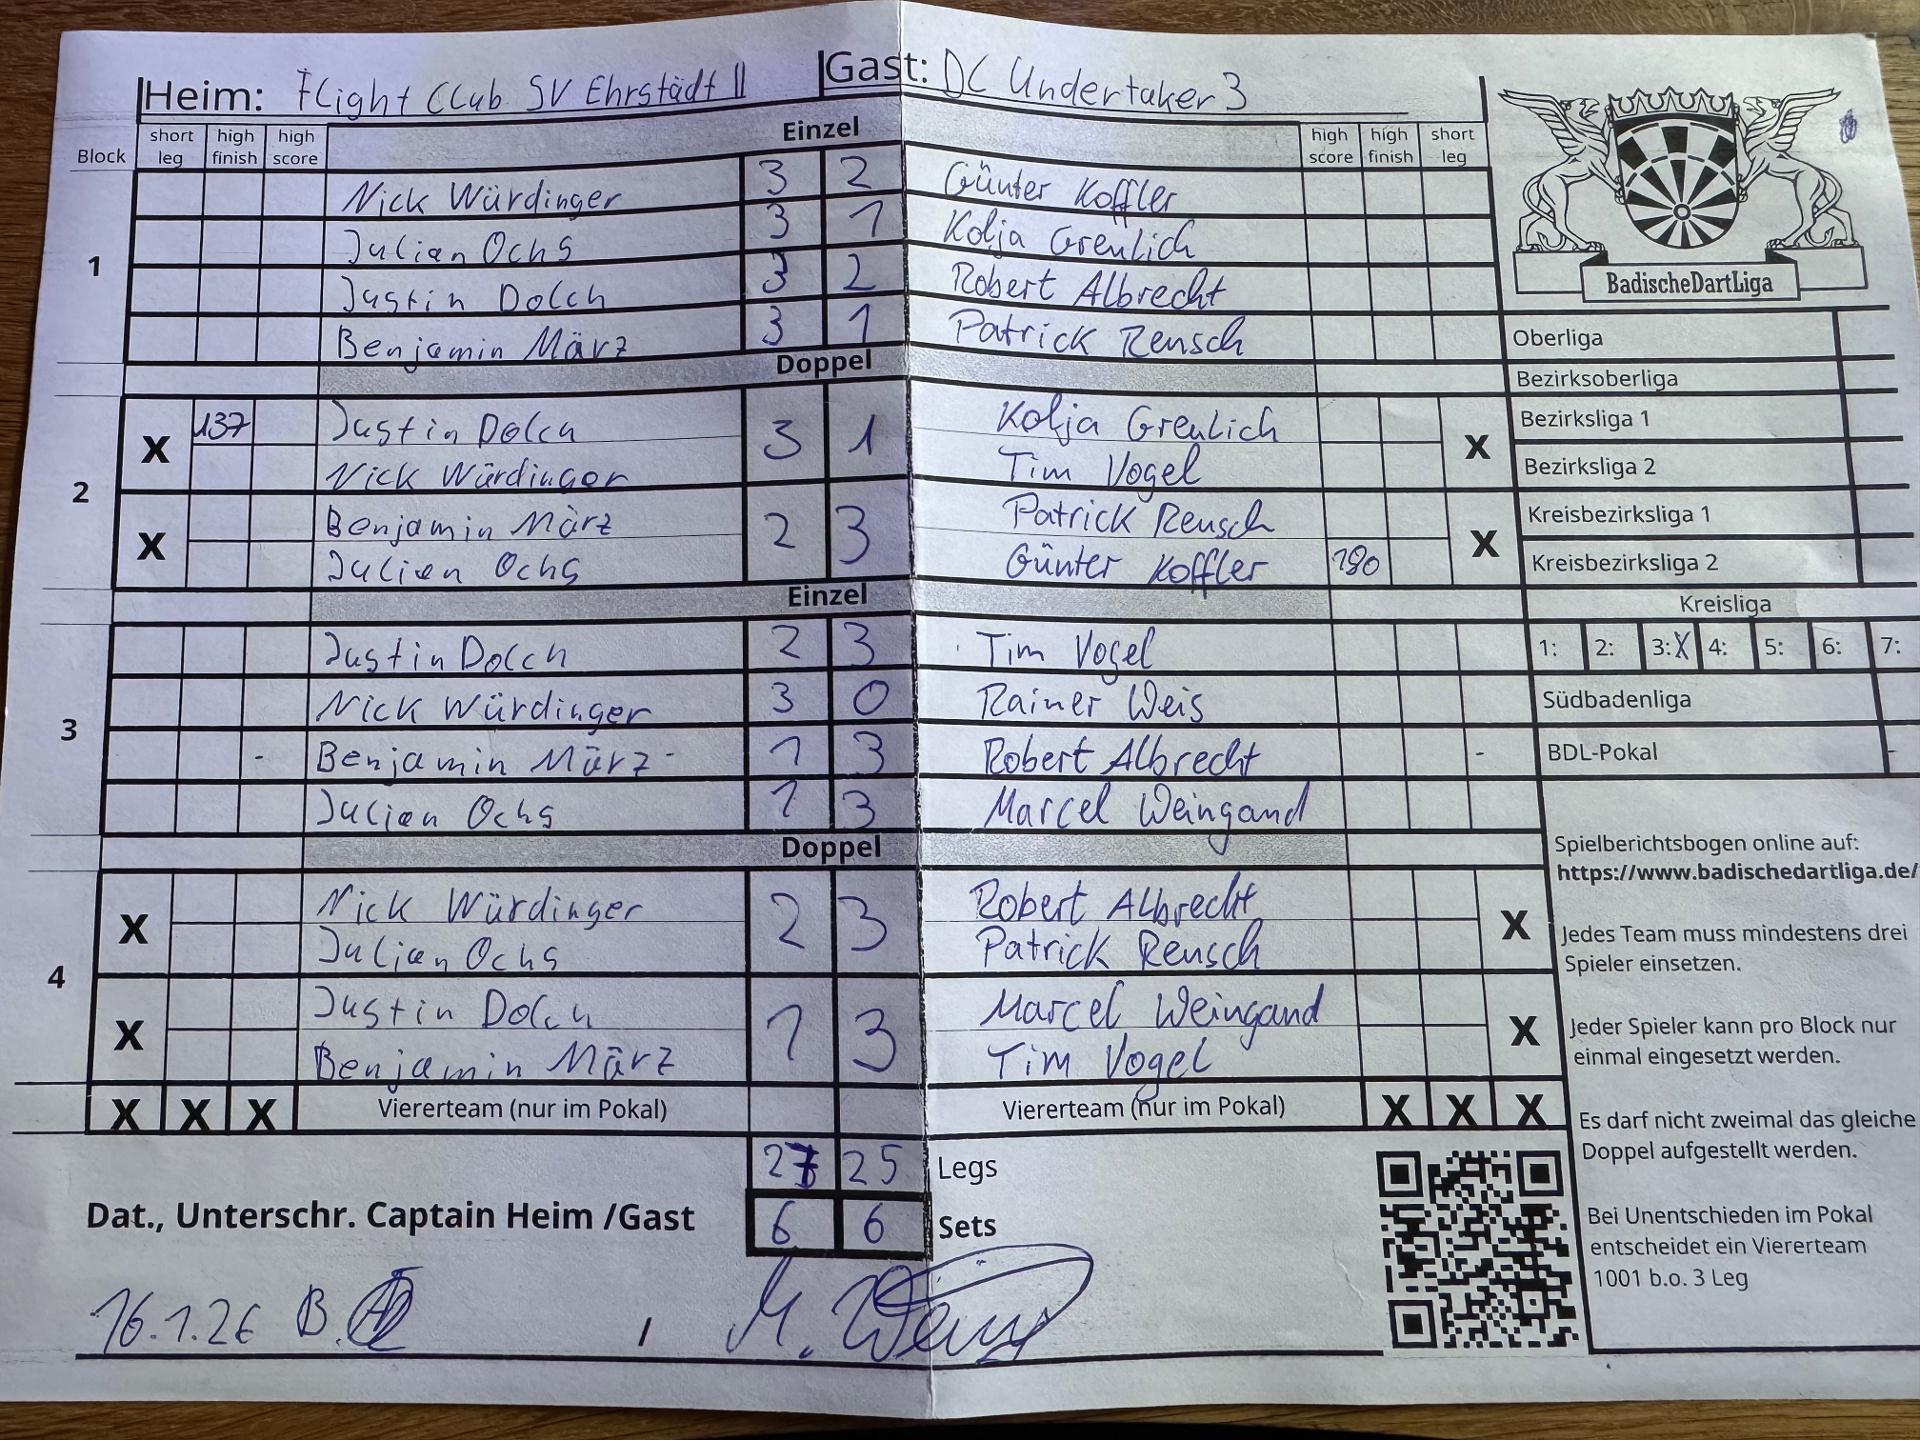 Heim: Flight Club SV Ehrstädt II Gast: DC Undertaker 3
Block short leg high finish high score Einzel high score high finish short leg
1
Nick Würdinger 3 2 Günter Koffler
Julian Ochs 3 1 Kolja Greulich
Justin Dolch 3 2 Robert Albrecht
Benjamin März 3 1 Patrick Rensch
Doppel
2
X 137 Justin Dolch 3 1 Kolja Greulich X
Nick Würdinger Tim Vogel
X Benjamin März 2 3 Patrick Rensch X
Julian Ochs Günter Koffler 180
Einzel
3
Justin Dolch 2 3 Tim Vogel
Nick Würdinger 3 0 Rainer Weis
- Benjamin März - 1 3 Robert Albrecht -
Julian Ochs 1 3 Marcel Weingand
Doppel
4
X Nick Würdinger 2 3 Robert Albrecht X
Julian Ochs Patrick Rensch
X Justin Dolch 1 3 Marcel Weingand X
Benjamin März Tim Vogel
X X X Viererteam (nur im Pokal) Viererteam (nur im Pokal) X X X
27 25 Legs
6 6 Sets
Dat., Unterschr. Captain Heim /Gast
16.1.26 B. /
BadischeDartLiga
Oberliga
Bezirksoberliga
Bezirksliga 1
Bezirksliga 2
Kreisbezirksliga 1
Kreisbezirksliga 2
Kreisliga
1: 2: 3: X 4: 5: 6: 7:
Südbadenliga
BDL-Pokal -
Spielberichtsbogen online auf:
https://www.badischedartliga.de/
Jedes Team muss mindestens drei
Spieler einsetzen.
Jeder Spieler kann pro Block nur
einmal eingesetzt werden.
Es darf nicht zweimal das gleiche
Doppel aufgestellt werden.
Bei Unentschieden im Pokal
entscheidet ein Viererteam
1001 b.o. 3 Leg